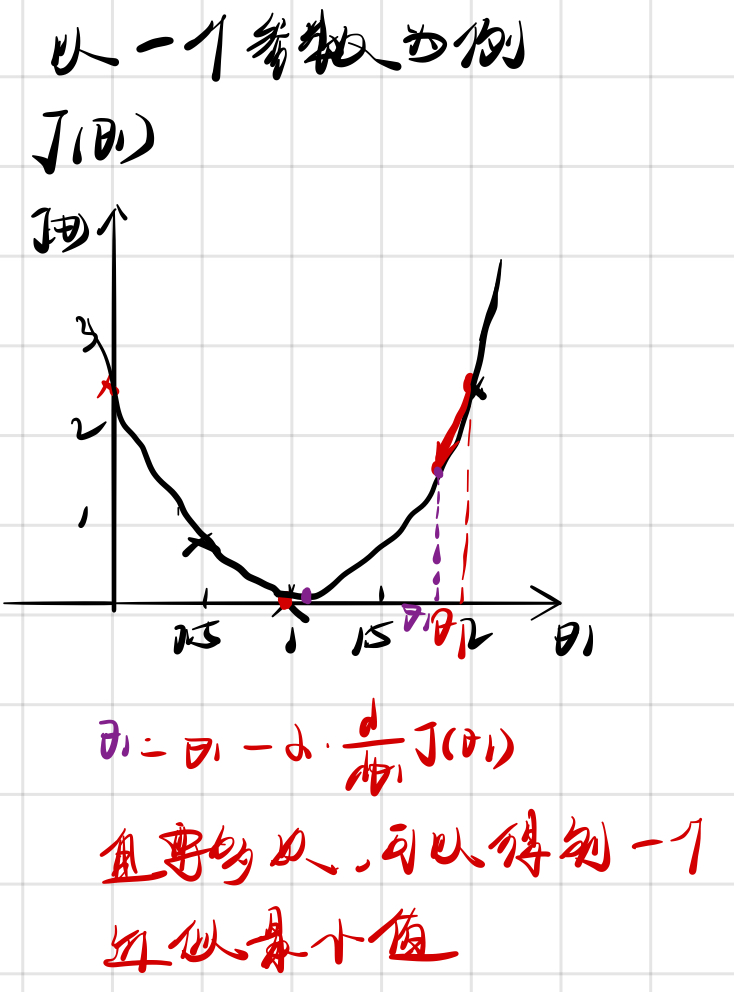 以一个参数为例
J(θ1)
J(θ1)
3
2
1
0.5 1 1.5 θ1 θ1 2 θ1
θ1 = θ1 - α · d/dθ1 J(θ1)
重复多次,可以得到一个
近似最小值